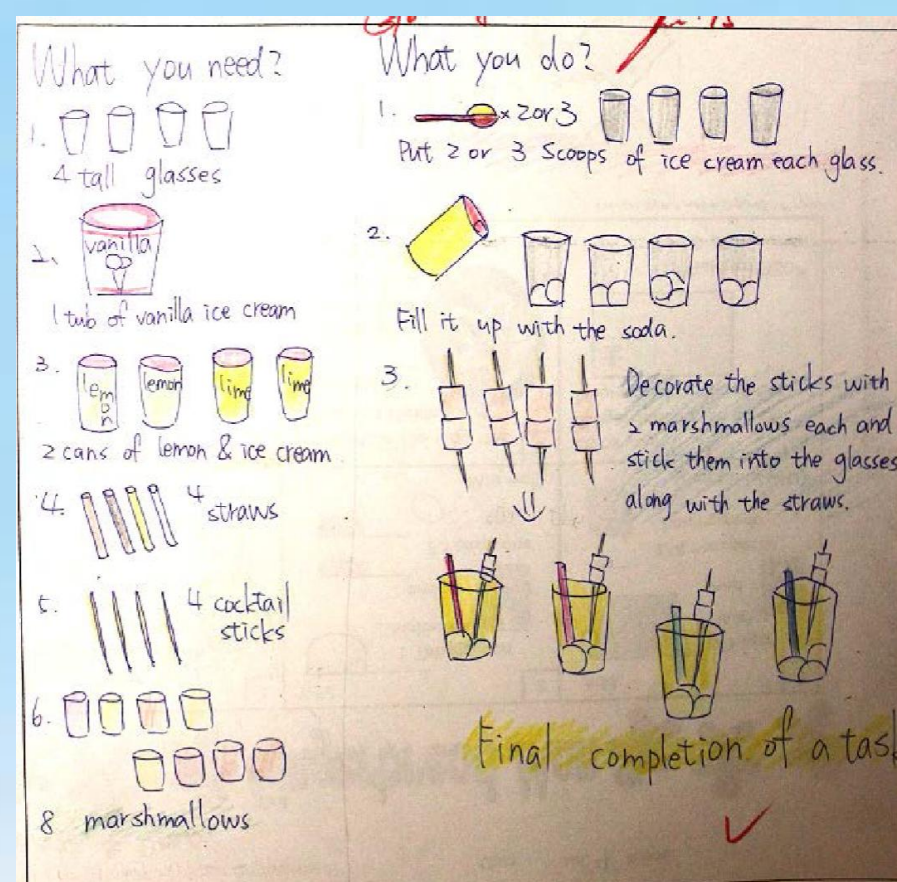 What you need?
1.
4 tall glasses
2.
vanilla
1 tub of vanilla ice cream
3.
lemon
lemon
lime
lime
2 cans of lemon & ice cream
4.
4
straws
5.
4 cocktail
sticks
6.
8 marshmallows
What you do?
1.
× 2 or 3
Put 2 or 3 Scoops of ice cream each glass.
2.
Fill it up with the soda.
3.
Decorate the sticks with
2 marshmallows each and
stick them into the glasses
along with the straws.
Final completion of a tas